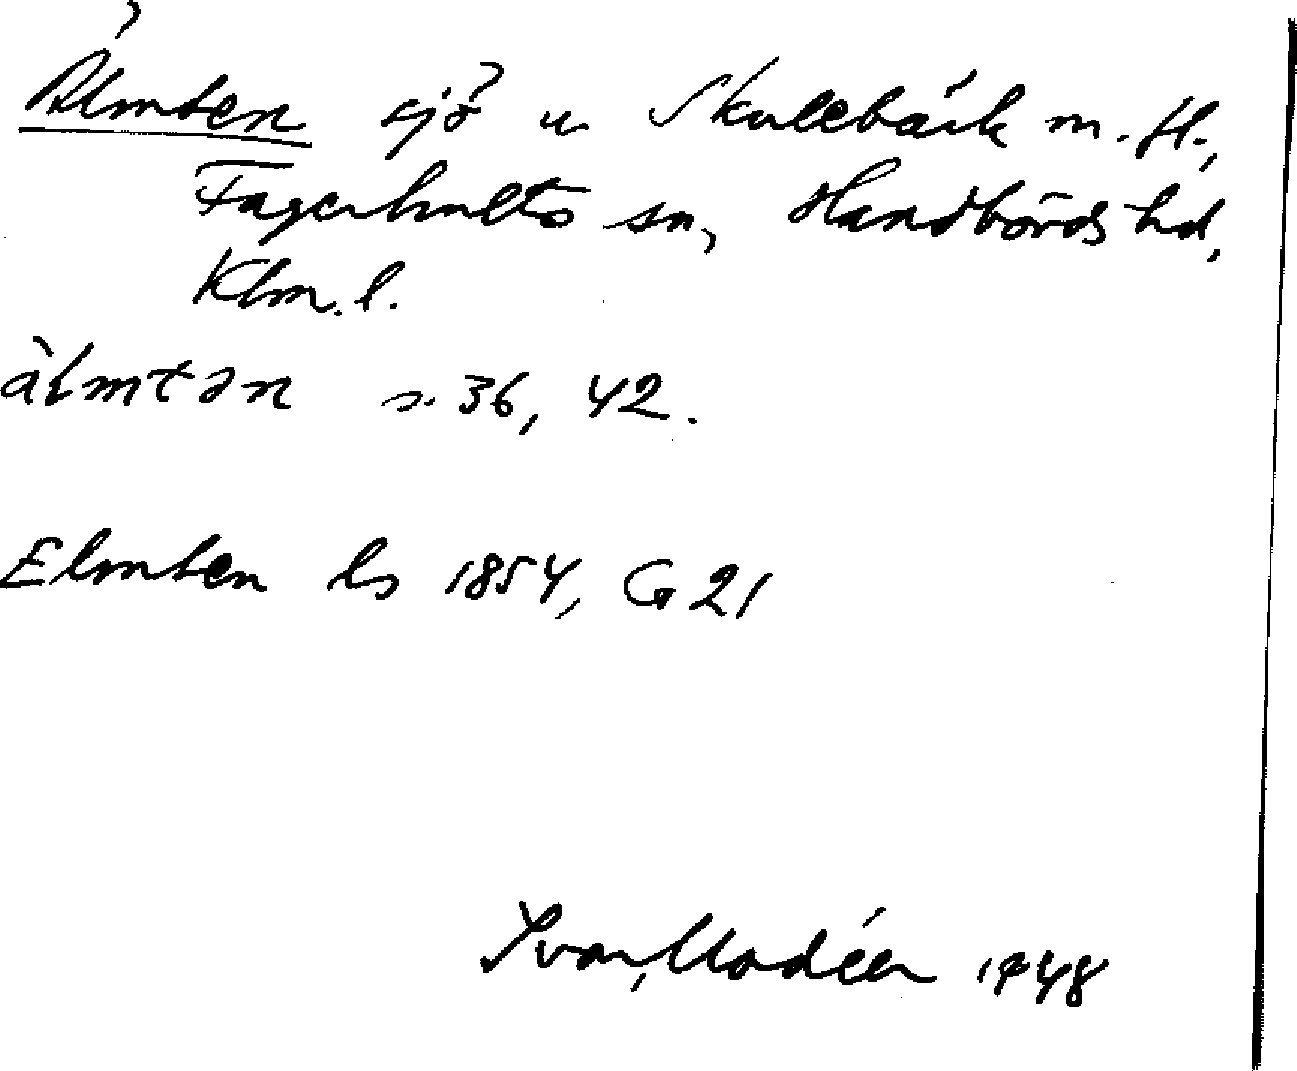 Älmten sjö u Skullebäck m. fl.,
Fagerhults sn, Handbörds hd,
Klm. l.
älmtən s. 36, 42.
Elmten ls 1854, G 21
Ivar Modéer 1948